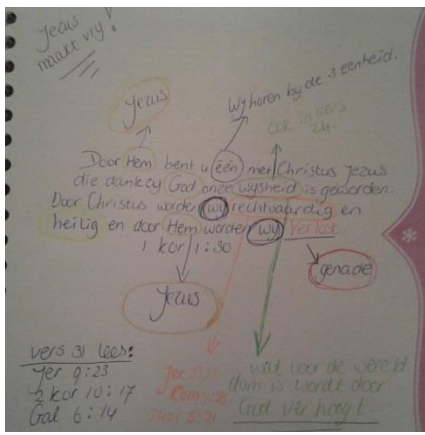 Jezus
maakt vrij!
Jezus
Wij horen bij de 3 eenheid.
ook in vers
24.
Door Hem bent u één met Christus Jezus
die dankzij God onze wijsheid is geworden.
Door Christus worden wij rechtvaardig en
heilig en door Hem worden wij verlost
1 kor 1:30
genade
Jezus
vers 31 lees:
Jer 9:23
2 kor 10:17
Gal 6:14
Jer
Rom
2 kor 5:21
wat voor de wereld
dom is wordt door
God verhoogt.